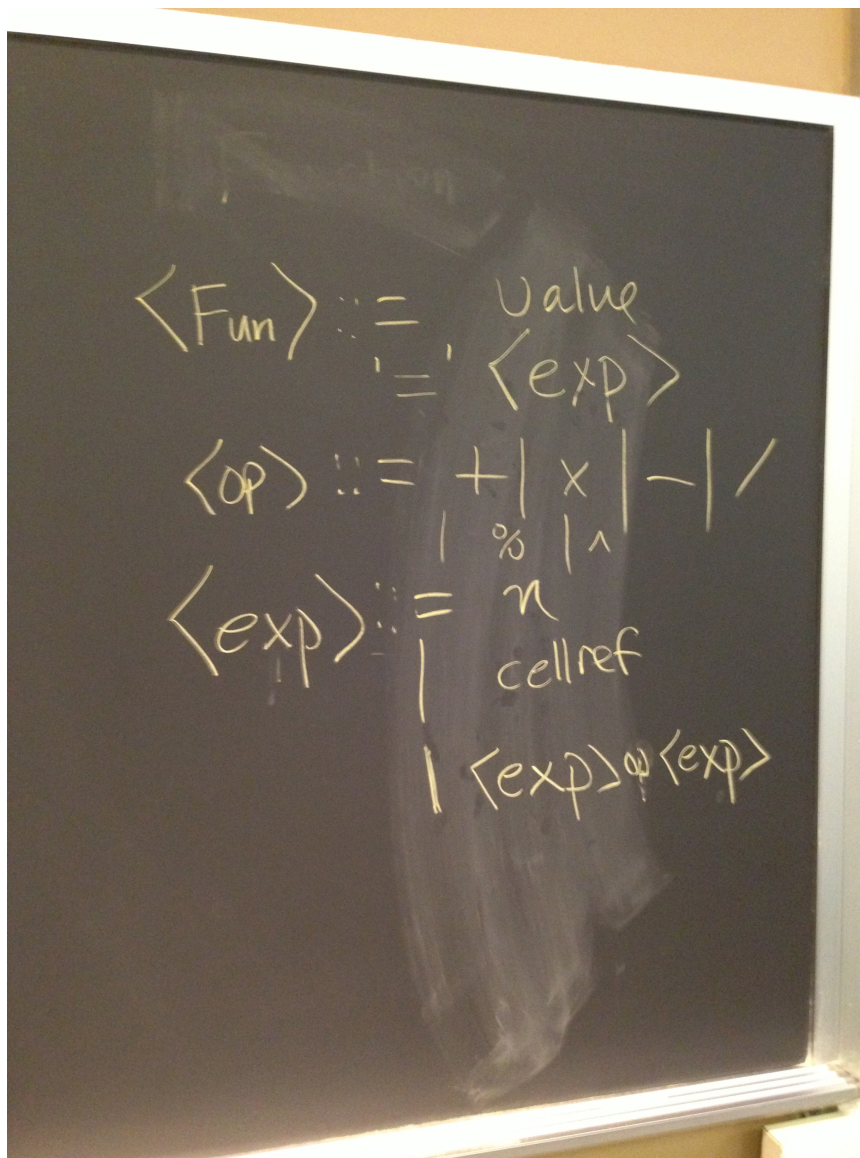 <Fun> ::= value
'=' <exp>
<op> ::= +| x |-| /
| % | ^
<exp> ::= n
| cellref
| <exp> op <exp>